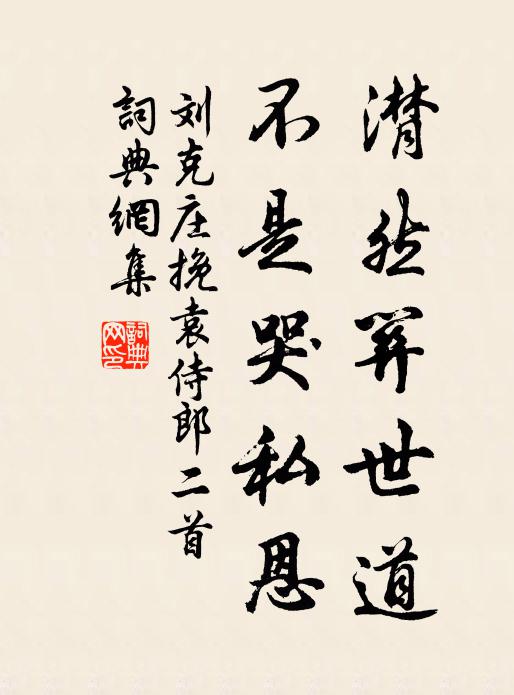 潸然關世道
不是哭私恩
刘克庄挽袁侍郎二首
詞典網集
詞典
网印